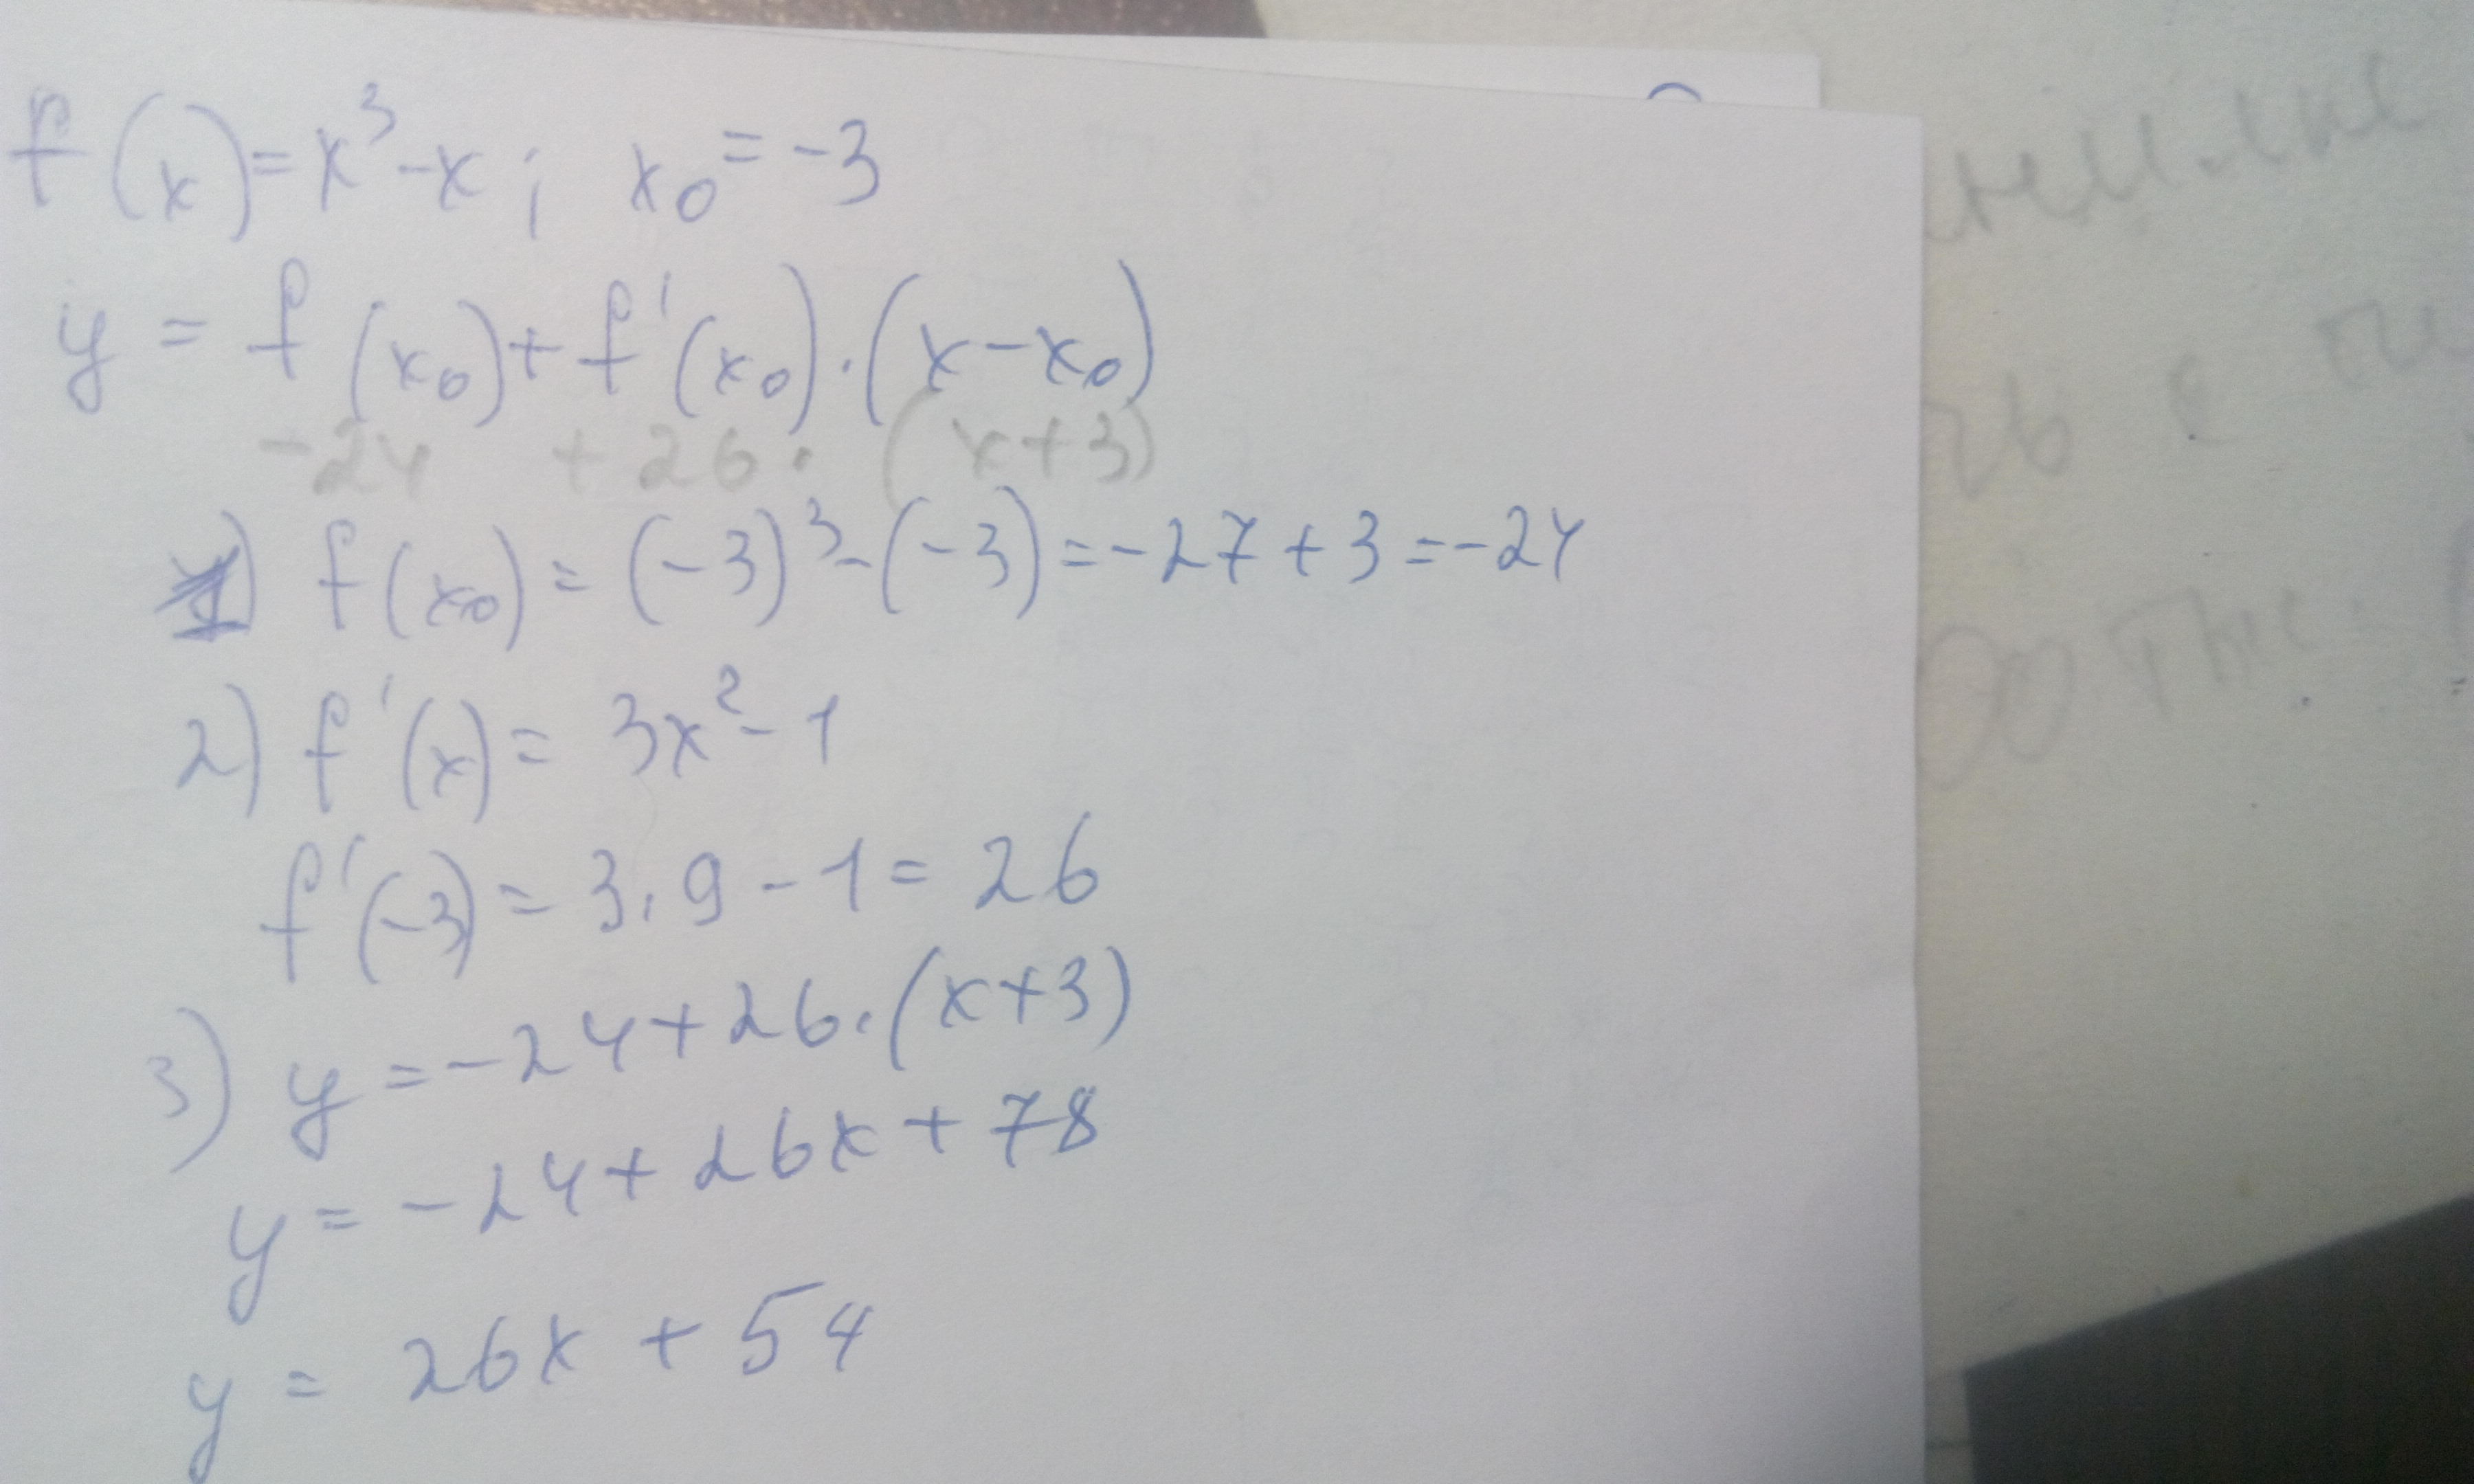 f(x)=x³-x; x₀=-3
y = f(x₀)+f'(x₀)·(x-x₀)
-24 +26·(x+3)
1) f(x₀)=(-3)³-(-3)=-27+3=-24
2) f'(x)= 3x²-1
f'(-3)=3·9-1=26
3) y=-24+26·(x+3)
y=-24+26x+78
y = 26x+54